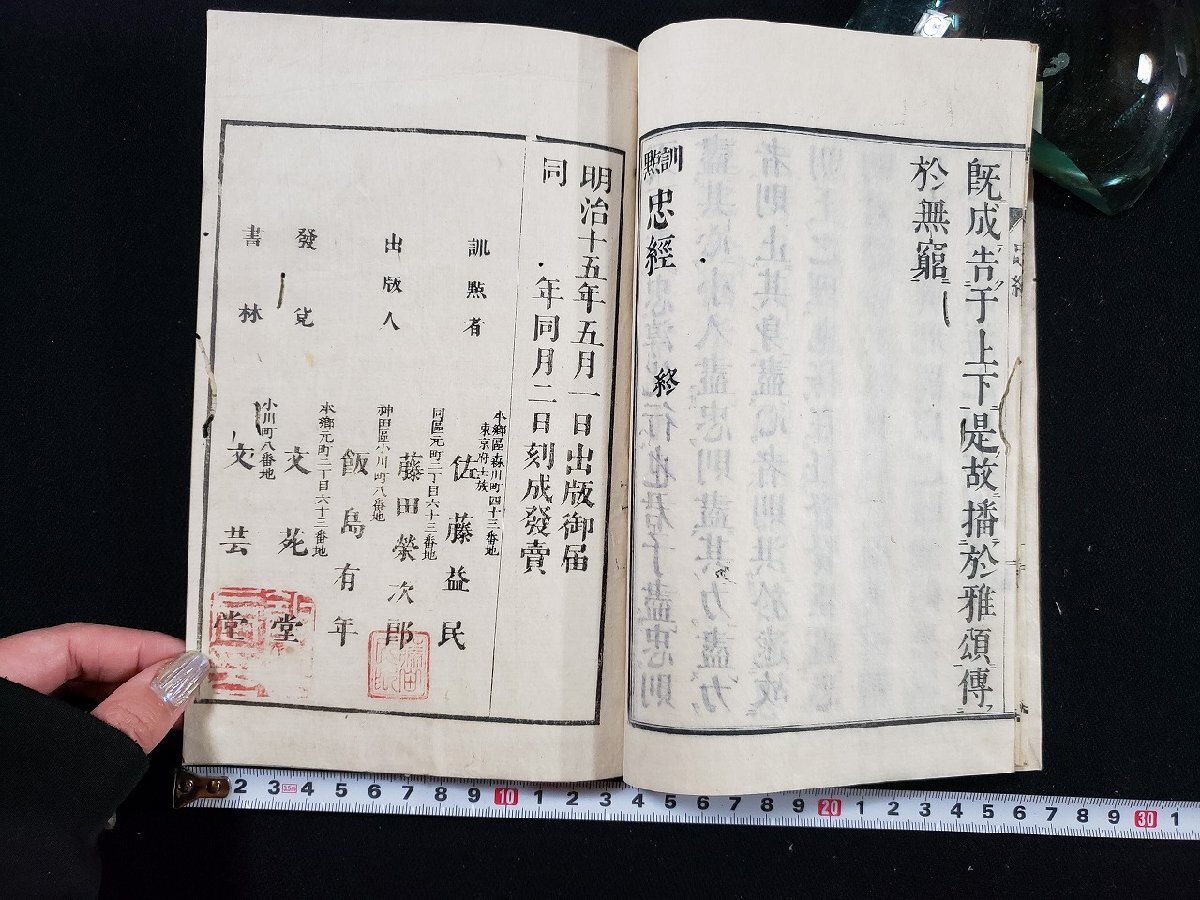 既成告于上下是故播於雅頌傳
於無窮
訓點忠經 終
明治十五年五月一日出版御届
同 年同月二日刻成發賣
訓點者
本鄉區森川町四十三番地
東京府士族
佐藤益民
出版人
同區元町二丁目六十三番地
藤田榮次郎
神田區小川町八番地
飯島有年
發兌
本鄉元町二丁目六十三番地
文苑堂
書林
小川町八番地
文芸堂
2 3 3.5 4 5 6 7 8 9 10 1 2 3 4 5 6 7 8 9 20 1 2 3 4 5 6 7 8 9 30 1